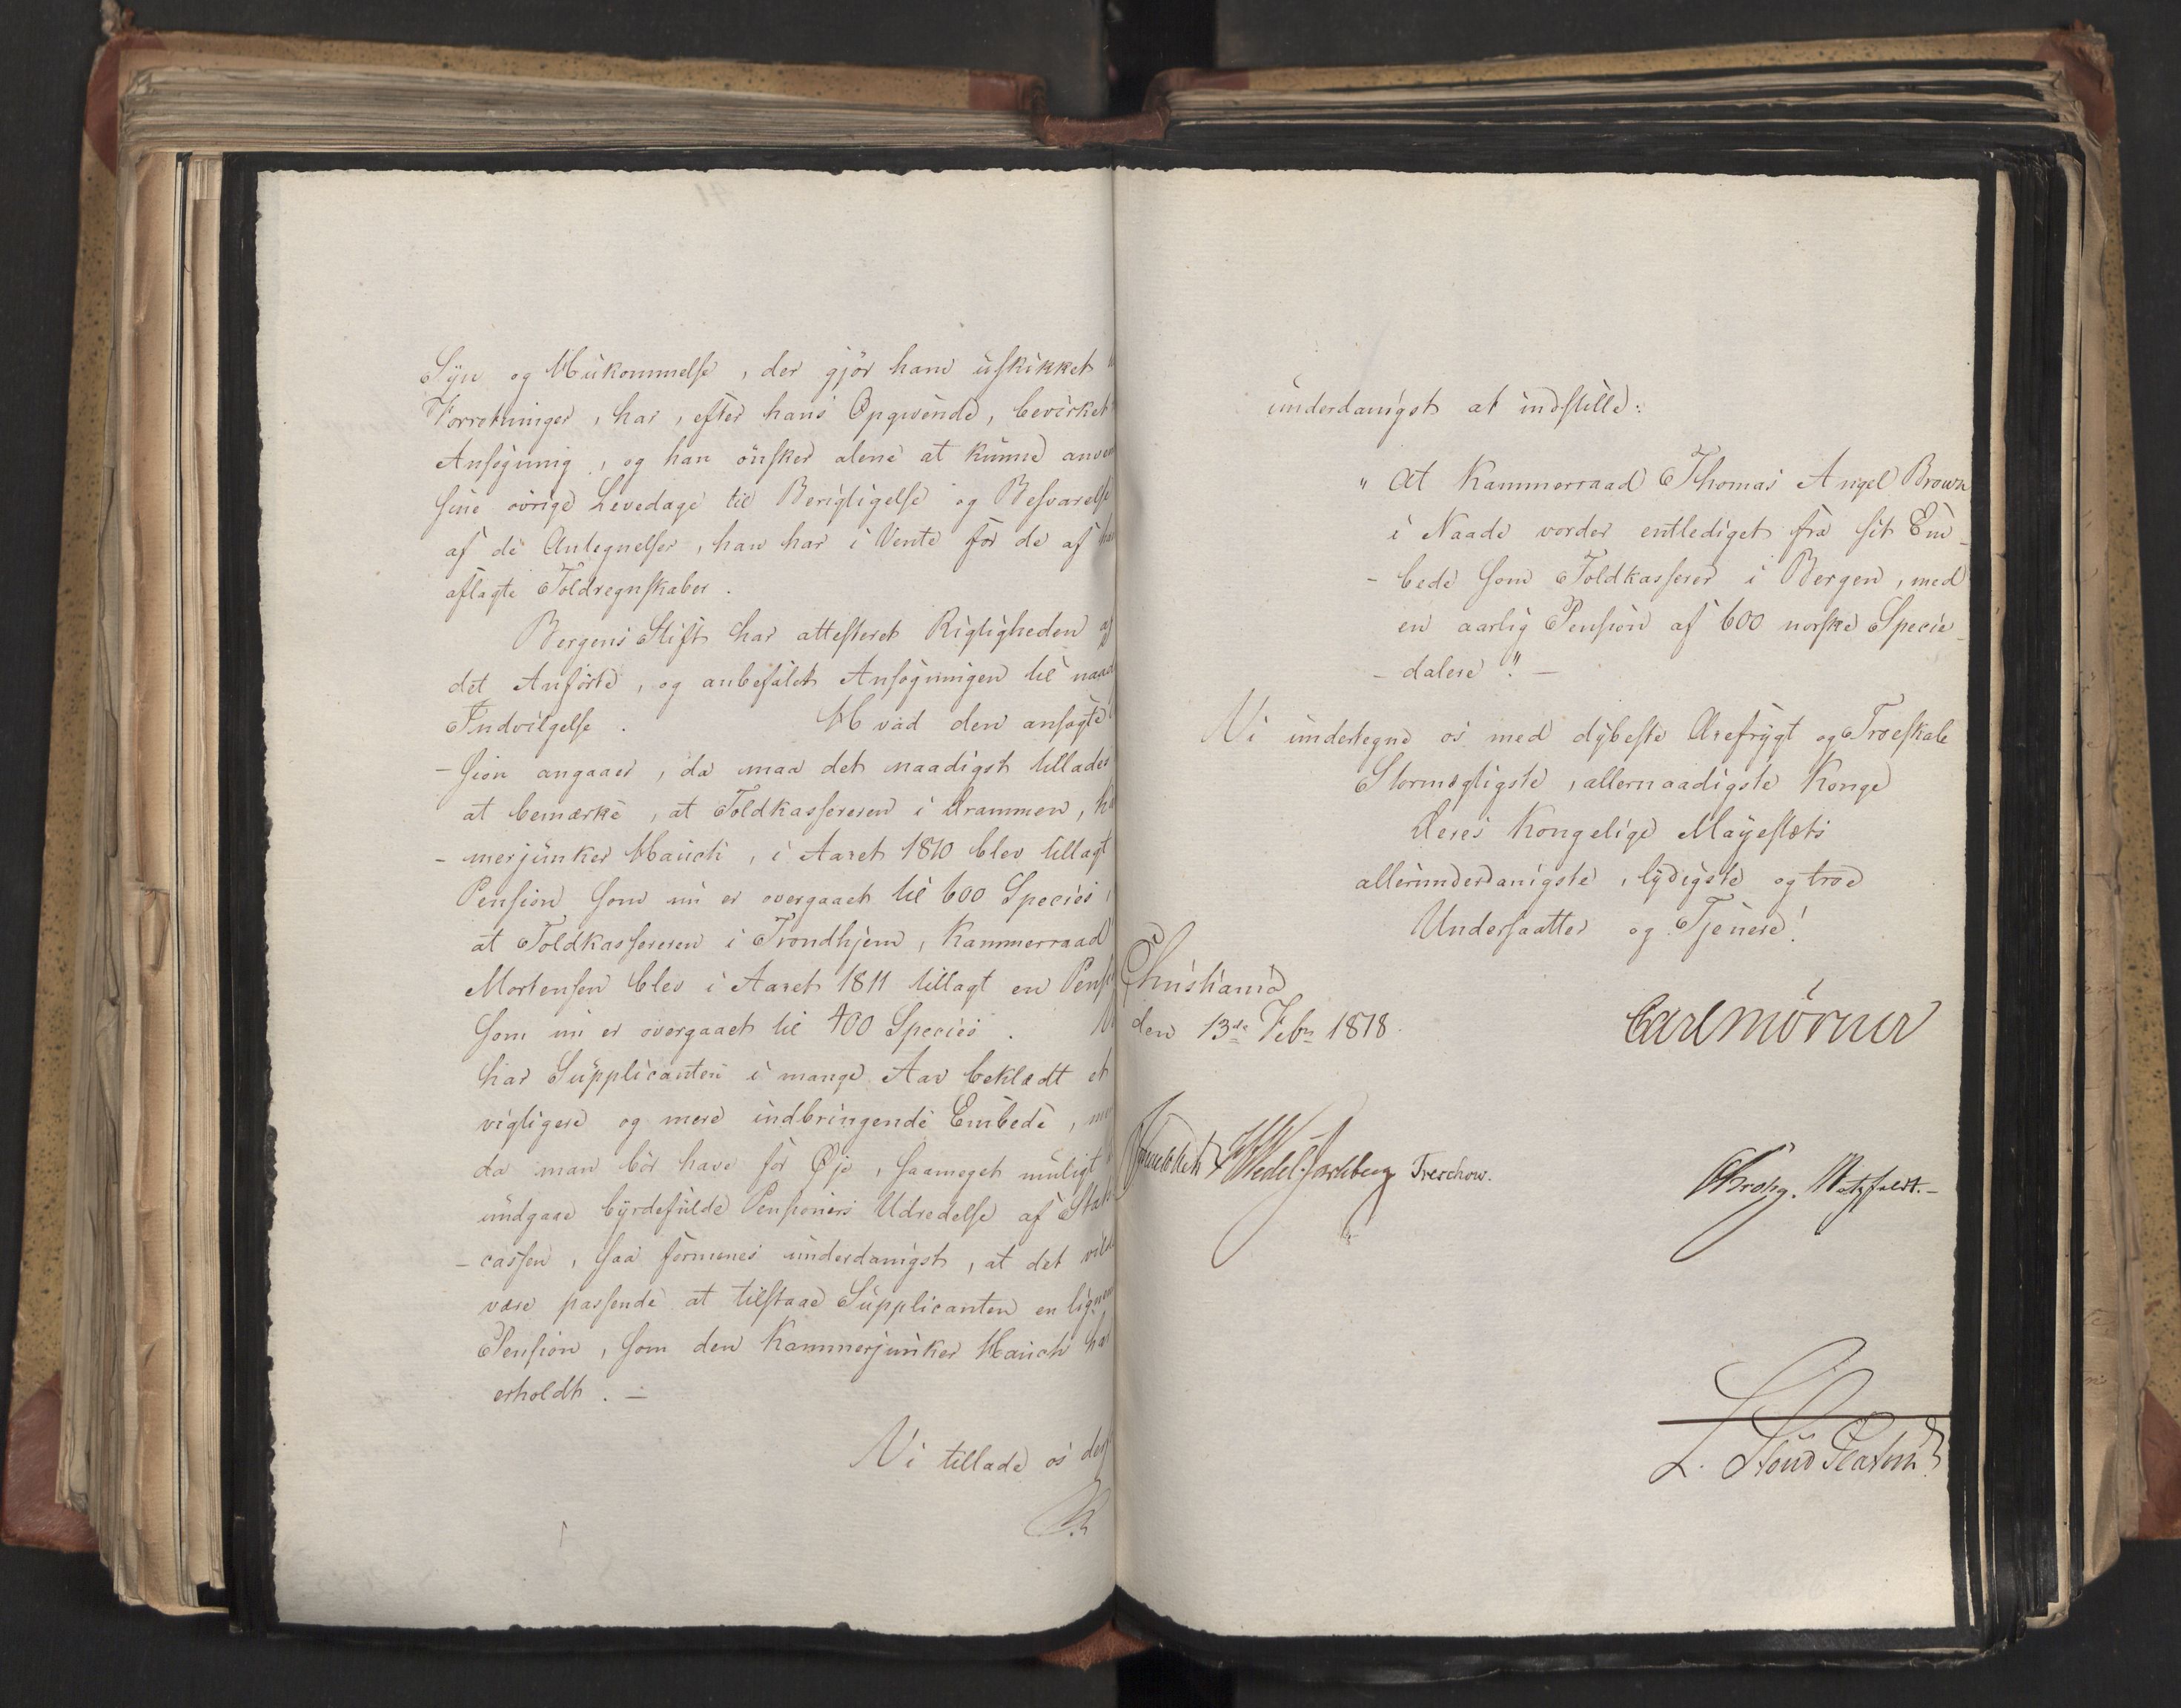 Syn og Hukommelse, der gjör ham uskikket
Forretninger, har, efter hans Opgivende, bevirket
Ansøgning, og han önsker alene at kunne anven
sine övrige Levedage til Berigtigelse og Besvarelse
af de Antegnelser, han har i Vente for de af ham
aflagte Toldregnskaber.
Bergens Stift har attesteret Rigtigheden af
det Anförte, og anbefalet Ansøgningen til naad
Indvilgelse. Hvad den ansøgte
-sion angaaer, da maa det naadigst tillades
at bemærke, at Toldkassereren i Drammen, Ka
-merjunker Hauch, i Aaret 1810 blev tillagt
Pension som nu er overgaaet til 600 Species,
at Toldkassereren i Trondhjem, Kammerraad
Mortensen blev i Aaret 1811 tillagt en Pens
som nu er overgaaet til 400 Species.
har Supplicanten i mange Aar beklædt et
vigtigere og mere indbringende Embede, men
da man bör have for Øje, saameget muligt
undgaae byrdefulde Pensioners Udredelse af Stats
-cassen, saa formenes underdanigst, at det vilde
være passende at tilstaae Supplicanten en lignen
Pension, som den Kammerjunker Hauch har
erholdt. -
Vi tillade os der
underdanigst at indstille:
" At Kammerraad Thomas Angel Brown
i Naade vorder entlediget fra sit Em-
-bede som Toldkasserer i Bergen, med
en aarlig Pension af 600 norske Specie-
-dalere". -
Vi undertegne os med dybeste Ærefrygt og Troeskab
Stormægtigste, allernaadigste Konge
Deres Kongelige Mayestæts
allerunderdanigste, lydigste og troe
Undersaatter og Tjenere!
Christiania
den 13de Febr 1818.
Carl Mörner
Sommerhielm HWedel-Jarlsberg Treschow.
CKrohg. Motzfeldt. -
L. Stoud Platou